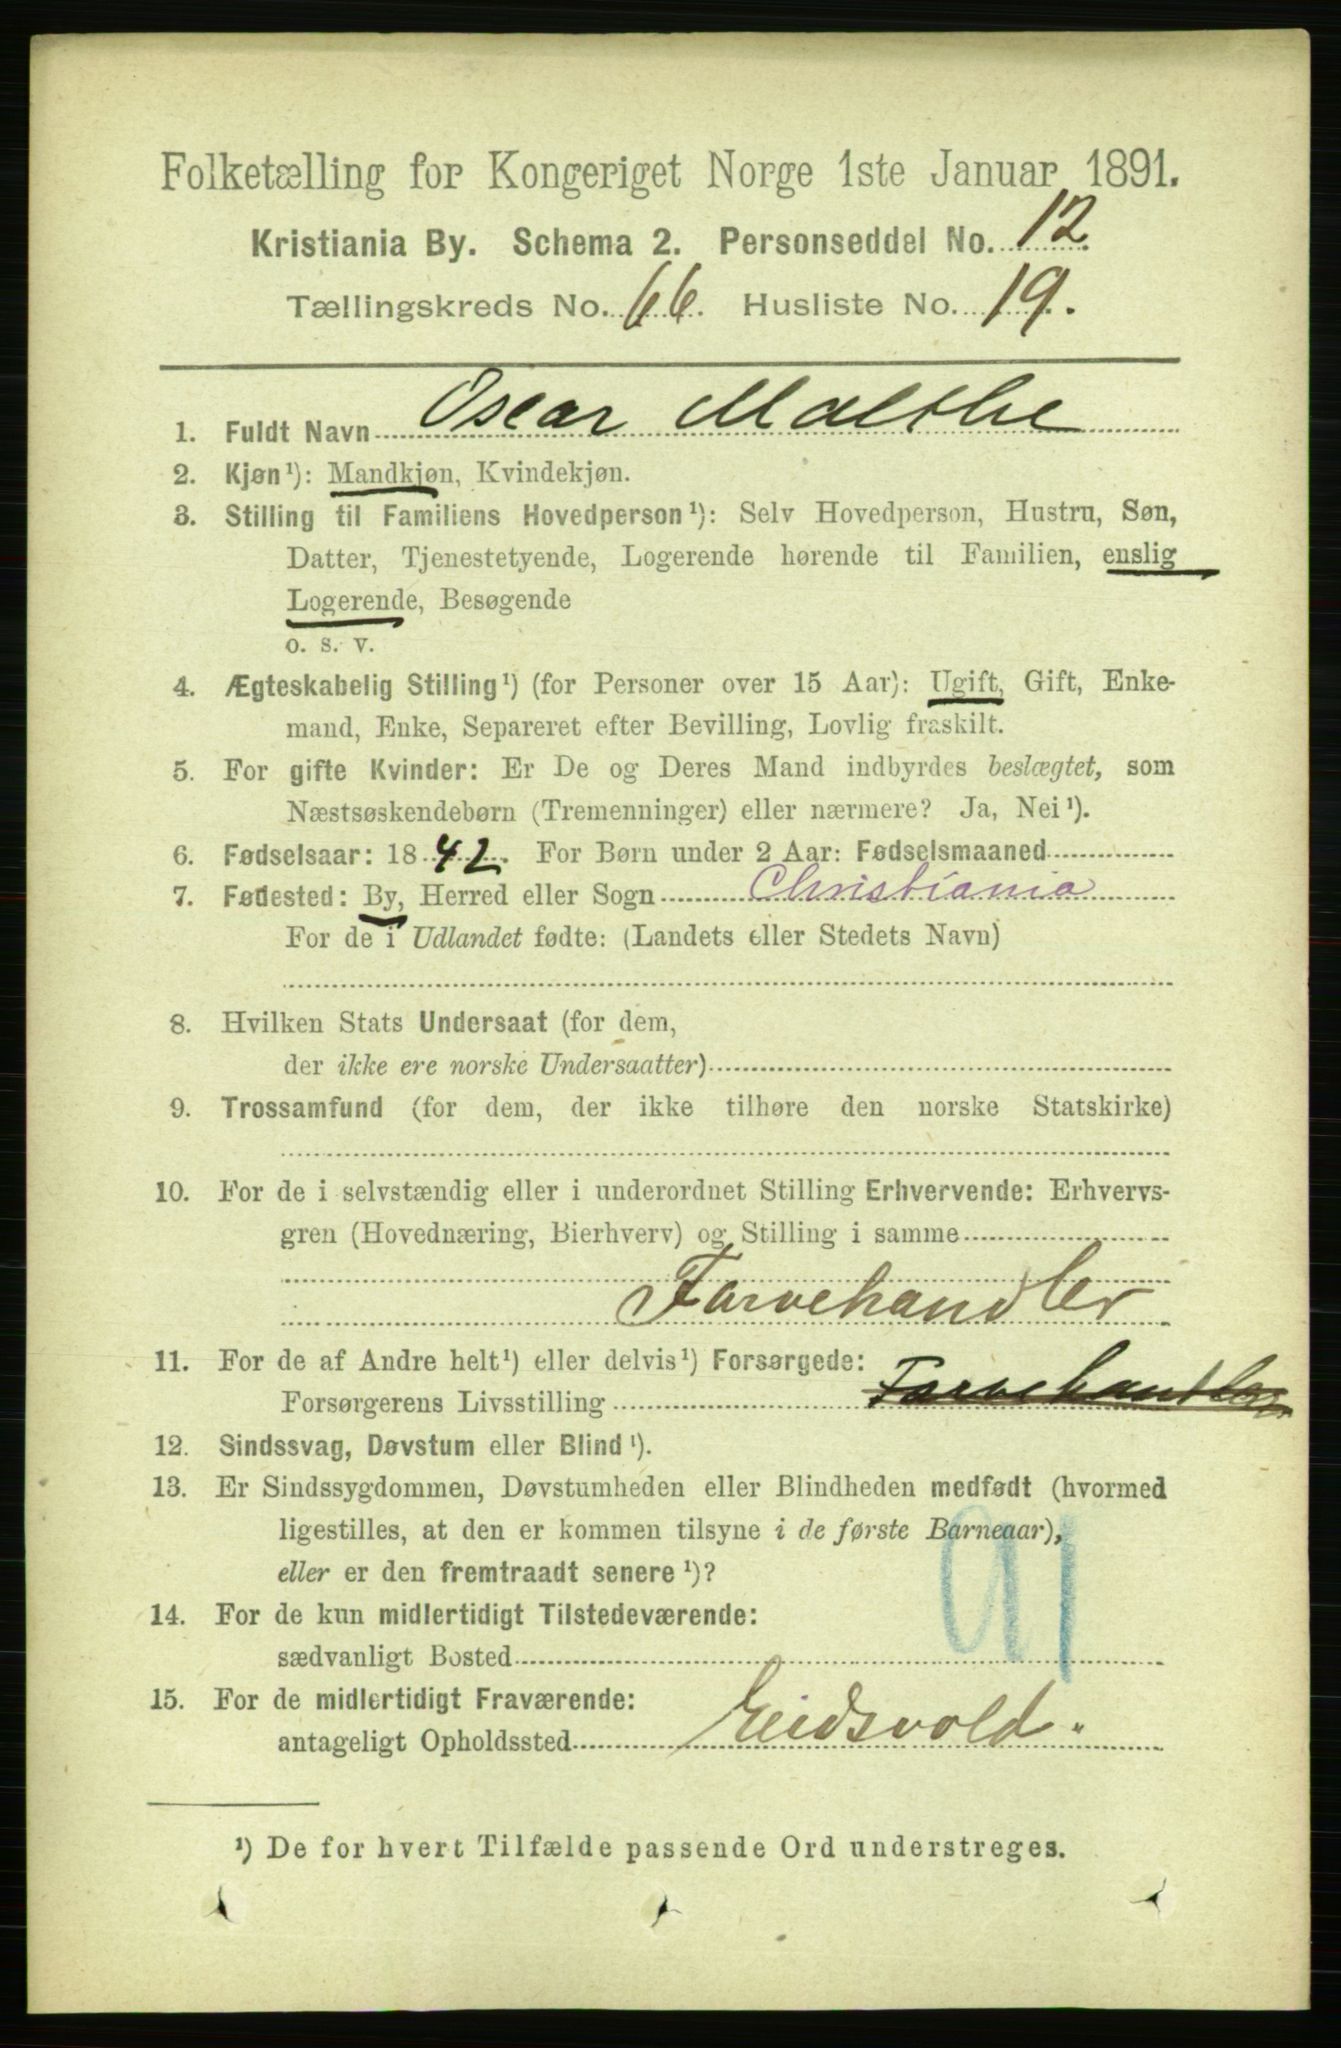 Folketælling for Kongeriget Norge 1ste Januar 1891.
Kristiania By. Schema 2. Personseddel No. 12.
Tællingskreds No. 66. Husliste No. 19.
1. Fuldt Navn Oscar Malthe
2. Kjøn¹): Mandkjøn, Kvindekjøn.
3. Stilling til Familiens Hovedperson¹): Selv Hovedperson, Hustru, Søn,
Datter, Tjenestetyende, Logerende hørende til Familien, enslig
Logerende, Besøgende
o. s. v.
4. Ægteskabelig Stilling¹) (for Personer over 15 Aar): Ugift, Gift, Enke-
mand, Enke, Separeret efter Bevilling, Lovlig fraskilt.
5. For gifte Kvinder: Er De og Deres Mand indbyrdes beslægtet, som
Næstsøskendebørn (Tremenninger) eller nærmere? Ja, Nei¹).
6. Fødselsaar: 1842. For Børn under 2 Aar: Fødselsmaaned
7. Fødested: By, Herred eller Sogn Christiania
For de i Udlandet fødte: (Landets eller Stedets Navn)
8. Hvilken Stats Undersaat (for dem,
der ikke ere norske Undersaatter)
9. Trossamfund (for dem, der ikke tilhøre den norske Statskirke)
10. For de i selvstændig eller i underordnet Stilling Erhvervende: Erhvervs-
gren (Hovednæring, Bierhverv) og Stilling i samme
Farvehandler
11. For de af Andre helt¹) eller delvis¹) Forsørgede:
Forsørgerens Livsstilling Farvehandler
12. Sindssvag, Døvstum eller Blind¹).
13. Er Sindssygdommen, Døvstumheden eller Blindheden medfødt (hvormed
ligestilles, at den er kommen tilsyne i de første Barneaar),
eller er den fremtraadt senere¹)?
91
14. For de kun midlertidigt Tilstedeværende:
sædvanligt Bosted
15. For de midlertidigt Fraværende:
antageligt Opholdssted Eidsvold.
¹) De for hvert Tilfælde passende Ord understreges.